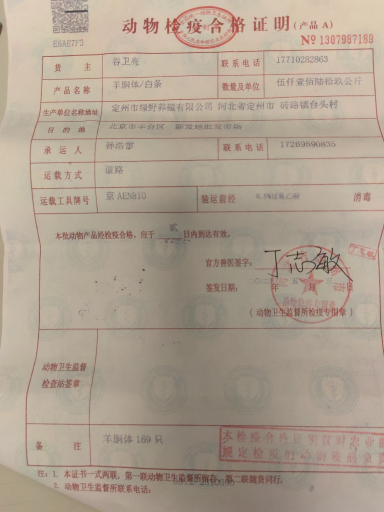 动物检疫合格证明(产品 A)
E6AE7F3
№ 1307987189
货 主 谷卫亮 联系电话 17710282863
产品名称 羊胴体/白条 数量及单位 伍仟壹佰陆拾玖公斤
生产单位名称地址 定州市绿野养殖有限公司 河北省定州市 砖路镇台头村
目的地 北京市丰台区
承运人 联系电话 17269690835
运载方式 道路
运载工具牌号 京AEN810 装运前经 消毒
本批动物产品经检疫合格,应于 贰 日内到达有效。
官方兽医签字: 丁志敏
签发日期: 年 月 日
(动物卫生监督所检疫专用章)
动物卫生监督
检查站签章
备 注 羊胴体169只
注:1. 本证书一式两联,第一联动物卫生监督所留存,第二联随货同行。
2. 动物卫生监督所联系电话: